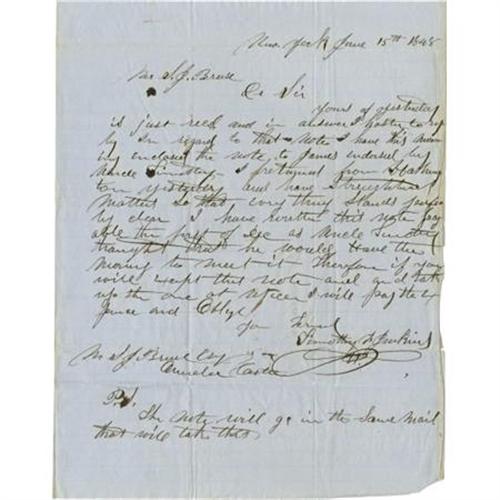 New York June 15th 1848
Mr. S. J. Bruse
Dr Sir
yours of yesterday
is just recd and in answer I hasten to rep
ly in regard to that note I have this morn
ing enclosed the note to James endorsed by
Uncle Timothy I returned from
yesterday and have
matters so that every thing stands perfec
ly clear I have written this note pay
able the first of Dec as Uncle Timothy
thought that he would have the
money to meet it Therefore if you
will except this note and and take
up the one at I will pay the
and
you
Timothy Jenkins
Mr. S. J. Bruse
P.S.
The note will go in the same mail
that will take this